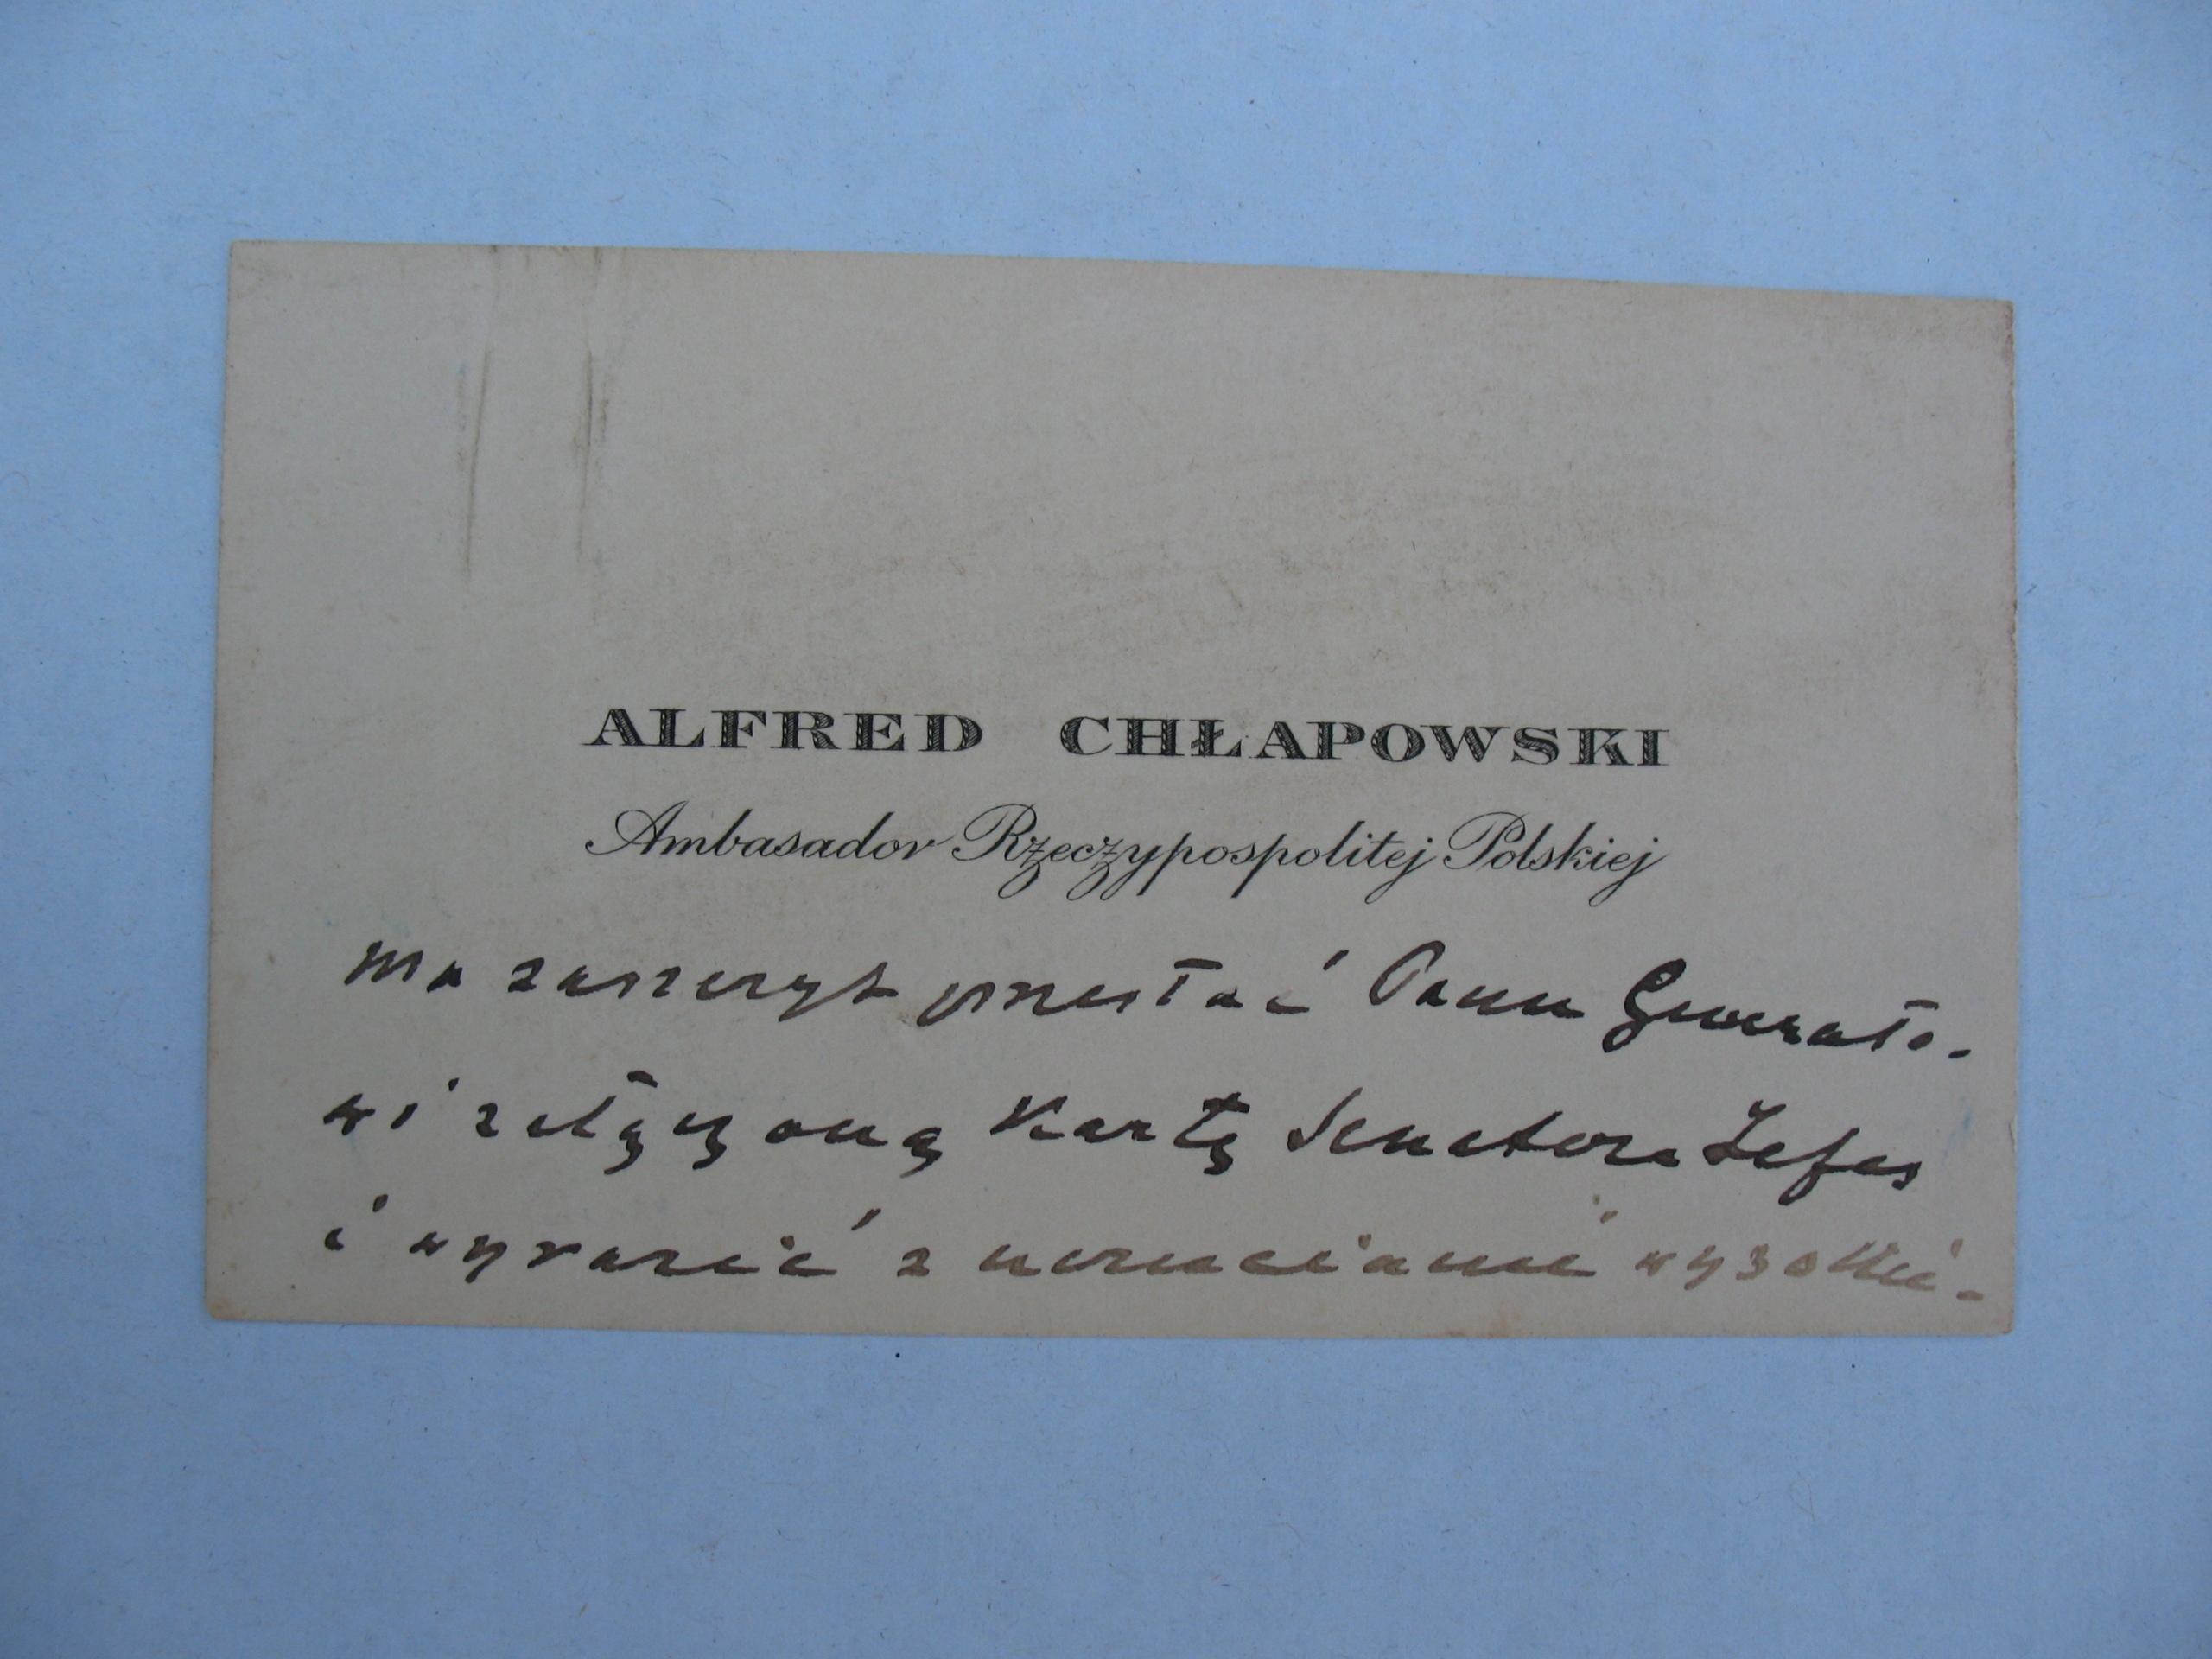 ALFRED CHŁAPOWSKI
Ambasador Rzeczypospolitej Polskiej
ma zaszczyt przesłać Panu Generało-
wi załączoną kartę Senatora
i wyrazić z uczuciami wysokie-